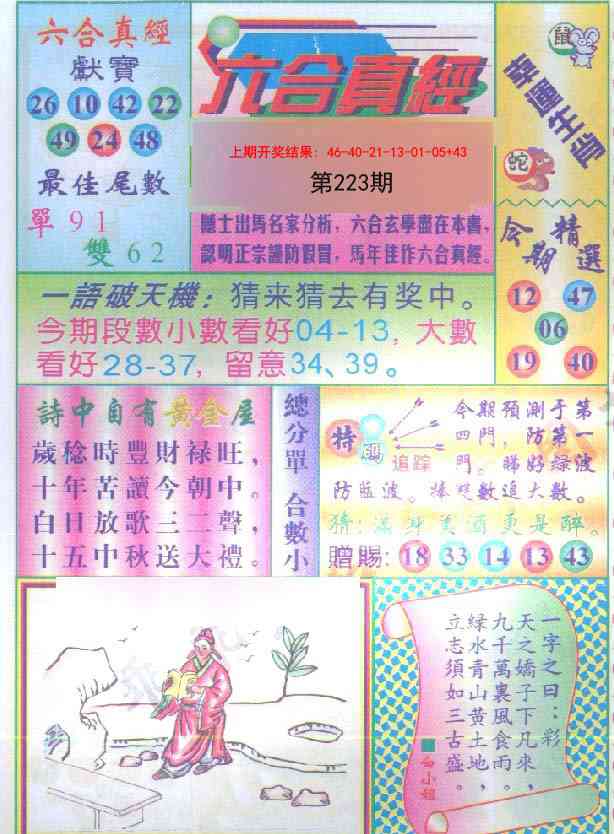 六合真經
獻寶
26 10 42 22
49 24 48
最佳尾數
單 9 1
雙 6 2
六合真經
上期开奖结果: 46-40-21-13-01-05+43
第223期
隱士出馬名家分析，六合玄學盡在本書，
認明正宗謹防假冒，馬年佳作六合真經。
鼠
幸運生肖
蛇
今期精選
12 47
06
19 40
一語破天機：猜来猜去有奖中。
今期段數小數看好04-13，大數
看好28-37，留意34、39。
詩中自有黃金屋
歲稔時豐財禄旺，
十年苦讀今朝中。
白日放歌三二聲，
十五中秋送大禮。
總分單 合數小
特碼
追踪
今期預測于第
四門，防第一
門。睇好绿波
防監波。捧單數追大數。
猜：滿身美酒更是醉。
贈賜: 18 33 14 13 43
一字之曰：彩
天之嬌子下凡來，
九千萬裏風食雨。
緑水青山黄土地，
立志須如三古盛。
白小姐